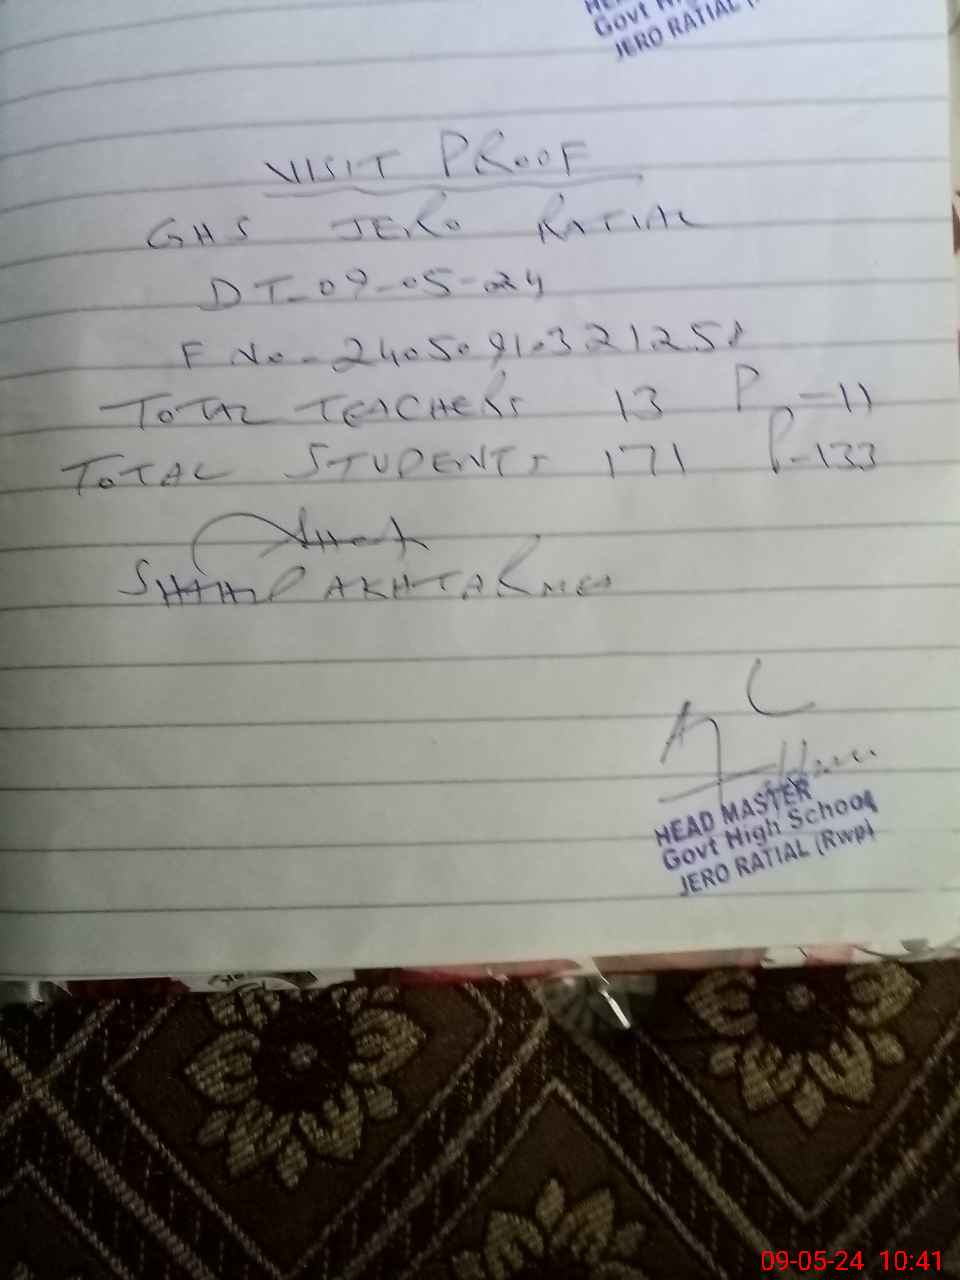 Govt H
JERO RATIAL
VISIT PROOF
GHS JERO RATIAL
DT-09-05-24
F No-2405091032125
TOTAL TEACHERS 13 P-11
TOTAL STUDENTS 171 P-133
AKHTAR MEA
HEAD MASTER
Govt High School
JERO RATIAL (Rwp)
09-05-24 10:41